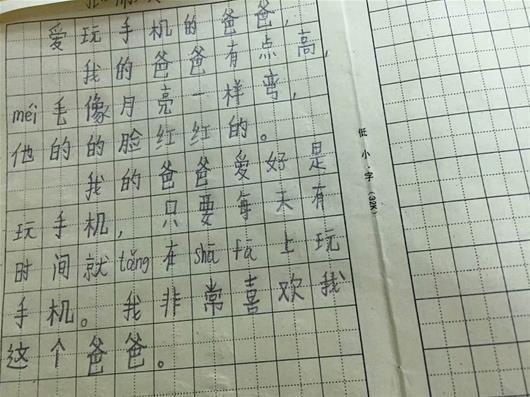 爱玩手机的爸爸,
我的爸爸有点高,
méi毛像月亮一样弯,
他的的脸红红的。
我的爸爸爱好是
玩手机,只要每天有
时间就tǎng在shā fā上玩
手机。我非常喜欢我
这个爸爸。
低小字(32K)